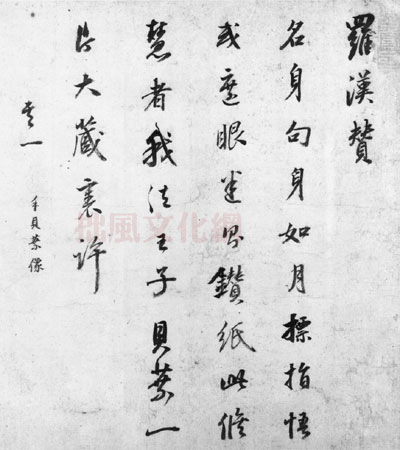 羅漢贊
名身句身如月標指悟
或遮眼迷鑽紙此脩
慧者我法王子貝葉一
片大藏裏許
一 手貝葉像
風文化網